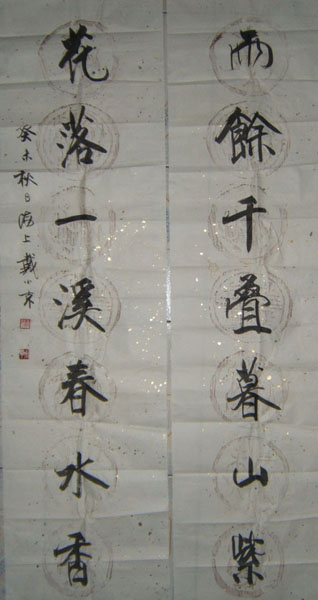 雨餘千叠暮山紫
花落一溪春水香
癸未秋日海上戴小京